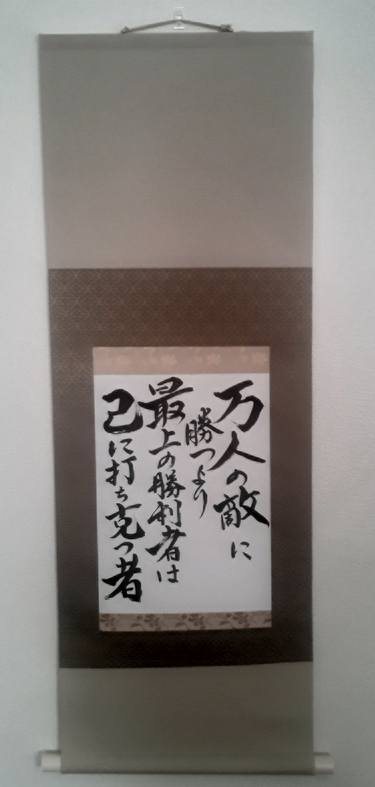 万人の敵に
勝つより
最上の勝利者は
己に打ち克つ者